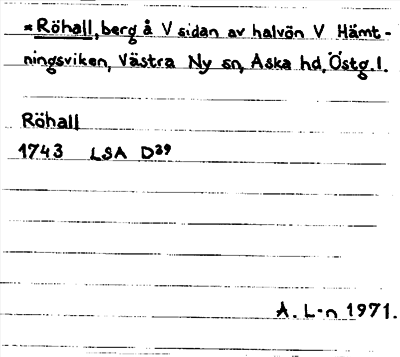 *Röhall, berg å V sidan av halvön V Hämt-
ningsviken, Västra Ny sn, Aska hd, Östg. l.
Röhall
1743 LSA D39
A. L-n 1971.